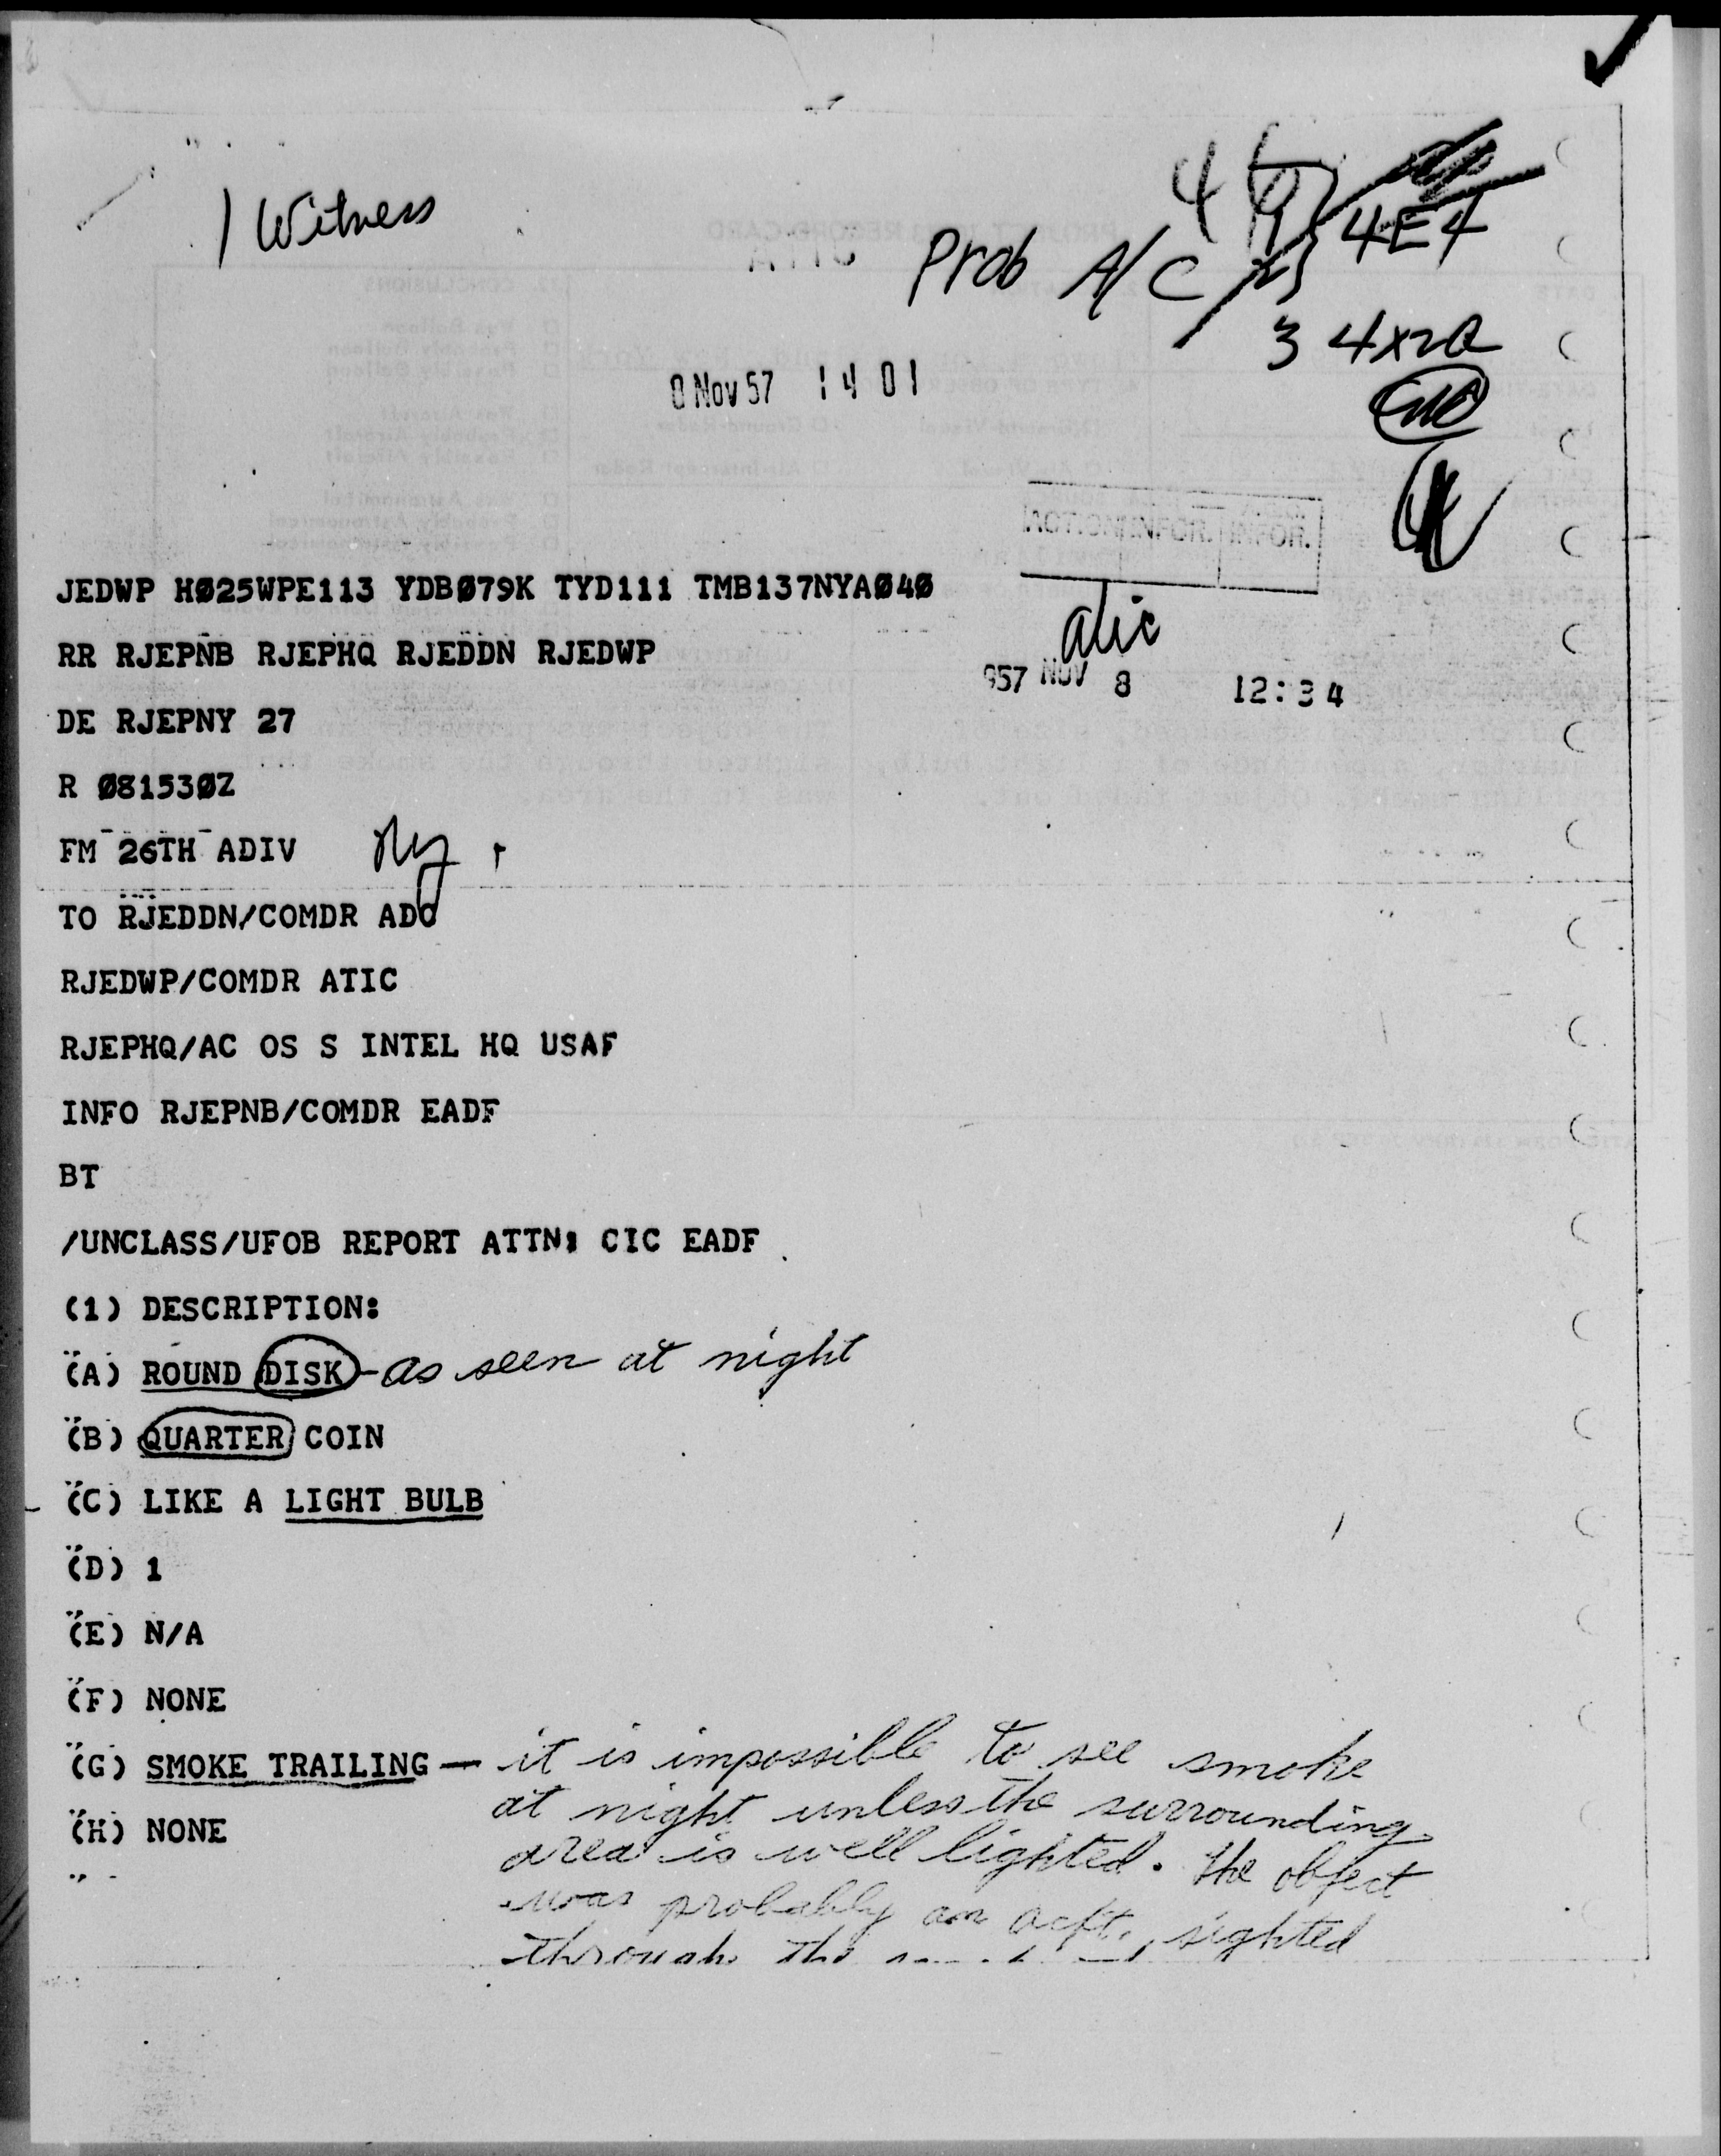 1 Witness
4E4
Prob A/C
3 4X2a
8 Nov 57 14 01
ACTION INFOR. INFOR.
JEDWP HØ25WPE113 YDBØ79K TYD111 TMB137NYAØ4Ø
atic
RR RJEPNB RJEPHQ RJEDDN RJEDWP
957 NOV 8 12:34
DE RJEPNY 27
R Ø8153ØZ
FM 26TH ADIV Ny
TO RJEDDN/COMDR ADC
RJEDWP/COMDR ATIC
RJEPHQ/AC OS S INTEL HQ USAF
INFO RJEPNB/COMDR EADF
BT
/UNCLASS/UFOB REPORT ATTN: CIC EADF
(1) DESCRIPTION:
(A) ROUND DISK - as seen at night
(B) QUARTER COIN
(C) LIKE A LIGHT BULB
(D) 1
(E) N/A
(F) NONE
(G) SMOKE TRAILING — it is impossible to see smoke
at night unless the surrounding
(H) NONE
area is well lighted. The object
was probably an acft, sighted
through the